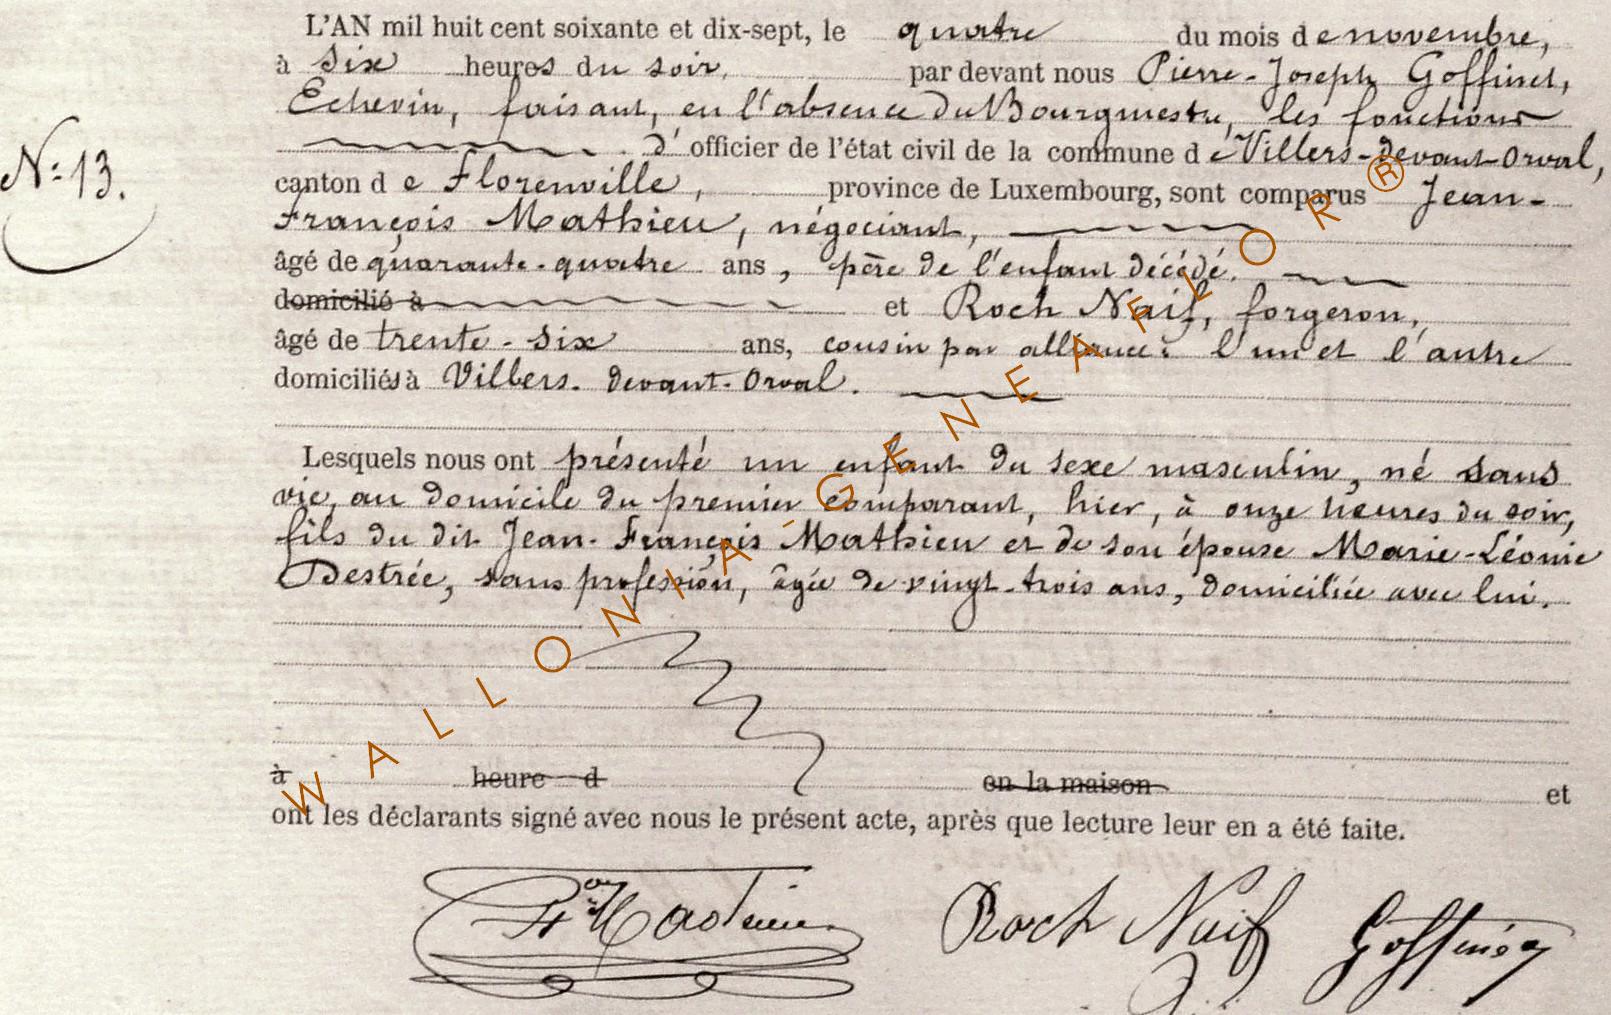 L'AN mil huit cent soixante et dix-sept, le quatre du mois de novembre,
à six heures du soir, par devant nous Pierre-Joseph Goffinet,
Echevin, faisant, en l'absence du Bourgmestre, les fonctions
d'officier de l'état civil de la commune de Villers-devant-Orval,
N° 13.
canton de Florenville, province de Luxembourg, sont comparus Jean-
François Mathieu, négociant,
âgé de quarante-quatre ans, père de l'enfant décédé.
domicilié à et Roch Naif, forgeron,
âgé de trente-six ans, cousin par alliance: l'un et l'autre
domiciliés à Villers-devant-Orval.
Lesquels nous ont présenté un enfant du sexe masculin, né sans
vie, au domicile du premier comparant, hier, à onze heures du soir,
fils du dit Jean-François Mathieu et de son épouse Marie-Léonie
Destrée, sans profession, âgée de vingt-trois ans, domiciliée avec lui.
à heure d en la maison et
ont les déclarants signé avec nous le présent acte, après que lecture leur en a été faite.
Roch Naif Goffinet
WALLONIA-GENEAFLOR®